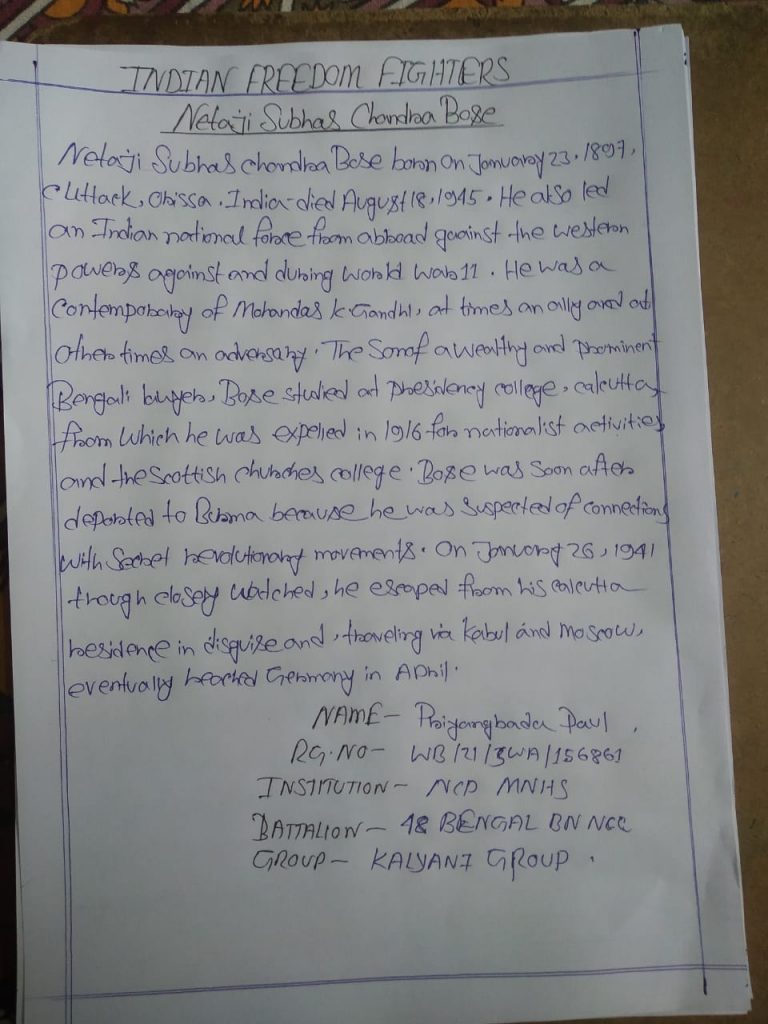 INDIAN FREEDOM FIGHTERS
Netaji Subhas Chandra Bose
Netaji Subhas Chandra Bose born on January 23, 1897,
Cuttack, Orissa, India-died August 18, 1945. He also led
an Indian national force from abroad gainst the western
powers against and during World War 11. He was a
contemporary of Mohandas K. Gandhi, at times an ally and at
other times an adversary. The Son of a wealthy and prominent
Bengali lawyer, Bose studied at Presidency college, calcutta,
from which he was expelled in 1916 for nationalist activities
and the Scottish churches college. Bose was soon after
deported to Burma because he was suspected of connections
with Secret revolutionary movements. On January 26, 1941
though closely watched, he escaped from his calcutta
residence in disguise and, traveling via Kabul and Moscow,
eventually reached Germany in April.
NAME- Priyangbada Paul.
RG.NO- WB/21/SWA/156861
INSTITUTION- NCD MNHS
BATTALION- 48 BENGAL BN NCC
GROUP- KALYANI GROUP.